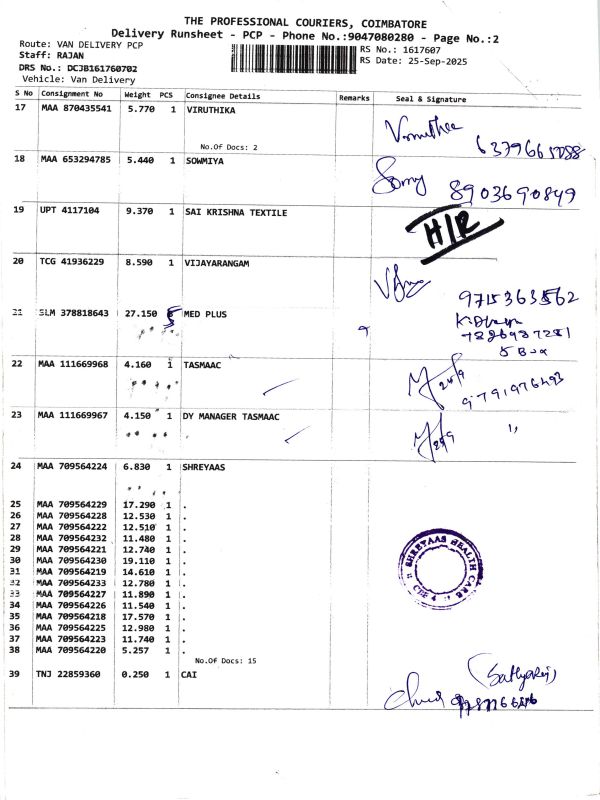 THE PROFESSIONAL COURIERS, COIMBATORE
Delivery Runsheet - PCP - Phone No.:9047080280 - Page No.:2
Route: VAN DELIVERY PCP
Staff: RAJAN
DRS No.: DCJB161760702
Vehicle: Van Delivery
RS No.: 1617607
RS Date: 25-Sep-2025
S No Consignment No Weight PCS Consignee Details Remarks Seal & Signature
17 MAA 870435541 5.770 1 VIRUTHIKA
No.Of Docs: 2
18 MAA 653294785 5.440 1 SOWMIYA
8903690849
19 UPT 4117104 9.370 1 SAI KRISHNA TEXTILE
H/R
20 TCG 41936229 8.590 1 VIJAYARANGAM
9715363562
21 SLM 378818643 27.150 5 MED PLUS
5 Box
22 MAA 111669968 4.160 1 TASMAAC
9791976493
23 MAA 111669967 4.150 1 DY MANAGER TASMAAC
24 MAA 709564224 6.830 1 SHREYAAS
25 MAA 709564229 17.290 1 .
26 MAA 709564228 12.530 1 .
27 MAA 709564222 12.510 1 .
28 MAA 709564232 11.480 1 .
29 MAA 709564221 12.740 1 .
30 MAA 709564230 19.110 1 .
31 MAA 709564219 14.610 1 .
32 MAA 709564233 12.780 1 .
33 MAA 709564227 11.890 1 .
34 MAA 709564226 11.540 1 .
35 MAA 709564218 17.570 1 .
36 MAA 709564225 12.980 1 .
37 MAA 709564223 11.740 1 .
38 MAA 709564220 5.257 1 .
No.Of Docs: 15
SHREYAAS HEALTH CARE
39 TNJ 22859360 0.250 1 CAI